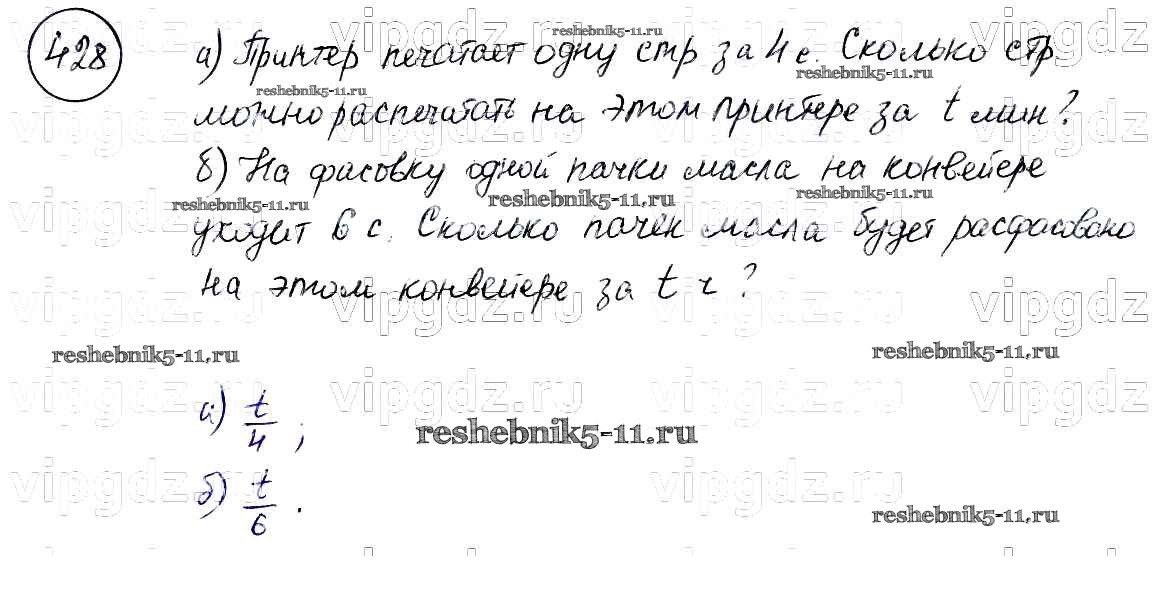 428
а) Принтер печатает одну стр за 4 с. Сколько стр.
можно распечатать на этом принтере за t мин?
б) На фасовку одной пачки масла на конвейере
уходит 6 с. Сколько пачек масла будет расфасовано
на этом конвейере за t ч?
а) t/4 ;
б) t/6 .
reshebnik5-11.ru
reshebnik5-11.ru
reshebnik5-11.ru
reshebnik5-11.ru
reshebnik5-11.ru
reshebnik5-11.ru
reshebnik5-11.ru
reshebnik5-11.ru
reshebnik5-11.ru
reshebnik5-11.ru
vipgdz.ru